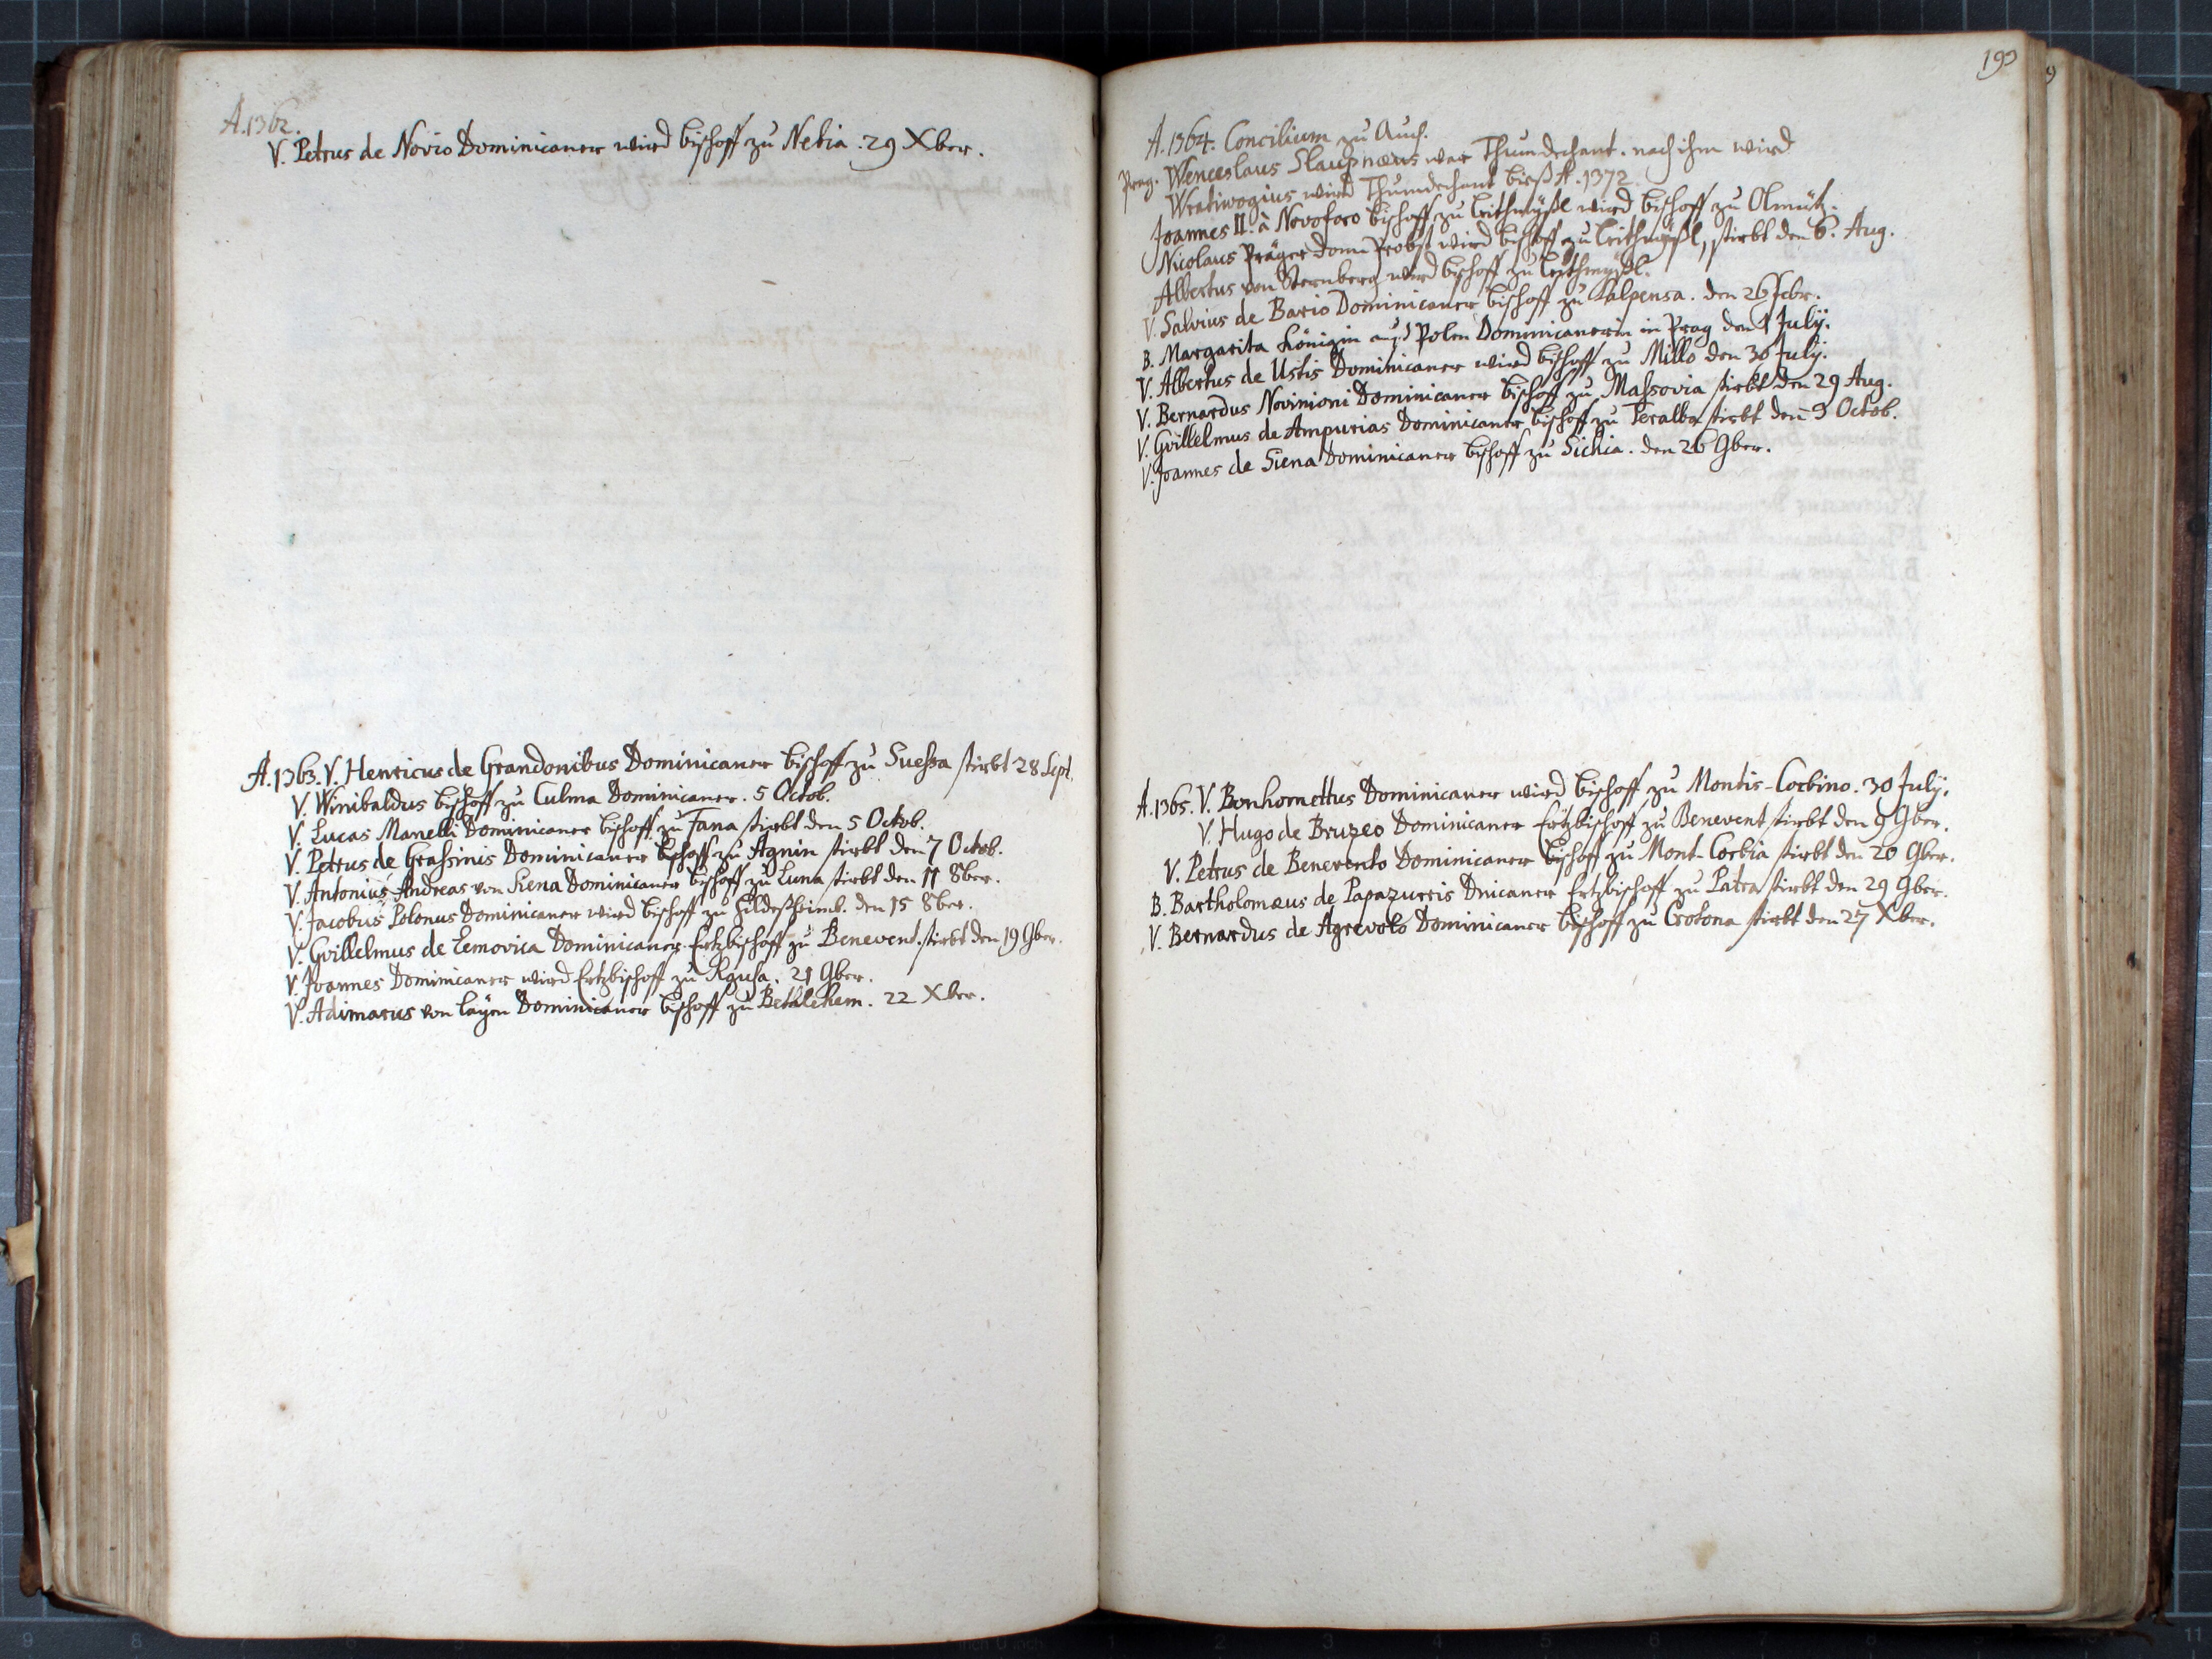 A. 1362.
V. Petrus de Novio Dominicaner wird bischoff zu Netia. 29 Xber.
A. 1363. V. Henricus de Grandonibus Dominicaner bischoff zu Suessa stirbt 28 Sept.
V. Winibaldus bischoff zu Culma Dominicaner. 5 Octob.
V. Lucas Manelli Dominicaner bischoff zu Fana stirbt den 5 Octob.
V. Petrus de Grassinis Dominicaner bischoff zu Agnin stirbt den 7 Octob.
V. Antonius Andreas von Siena Dominicaner bischoff zu Luna stirbt den 11 8ber.
V. Jacobus Polonus Dominicaner wird bischoff zu Hildeßheimb. den 15 8ber.
V. Gvillelmus de Lemovica Dominicaner Ertzbischoff zu Benevent. stirbt den 19 9ber.
V. Joannes Dominicaner wird Ertzbischoff zu Rgusa. 21 9ber.
V. Adimarus von Layen Dominicaner bischoff zu Bethlehem. 22 Xber.
199
A. 1364. Concilium zu Auch.
Prag. Wenceslaus Slaupnæus war Thumdechant. nach ihm wird
Wratiwogius wird Thumdechant bieß A. 1372.
Joannes II. à Novoforo bischoff zu Leithmyßl wird bischoff zu Olmütz.
Nicolaus Präger Dom Probst wird bischoff zu Leithmyßl, stirbt den 6. Aug.
Albertus von Sternberg wird bischoff zu Leithmyßl.
V. Salvius de Bario Dominicaner bischoff zu Salpensa. den 26 Febr.
B. Margarita Königin auß Polen Dominicanerin in Prag den 1 July.
V. Albertus de Ustis Dominicaner wird bischoff zu Millo den 30 July.
V. Bernardus Novinioni Dominicaner bischoff zu Massovia stirbt den 29 Aug.
V. Gvillelmus de Ampurias Dominicaner bischoff zu Teralba stirbt den 3 Octob.
V. Joannes de Siena Dominicaner bischoff zu Sichia. den 26 9ber.
A. 1365. V. Bonhomettus Dominicaner wird bischoff zu Montis-Corbino. 30 July.
V. Hugo de Bruzeo Dominicaner Ertzbischoff zu Benevent stirbt den 9 9ber.
V. Petrus de Benevento Dominicaner bischoff zu Mont-Corbia stirbt den 20 9ber.
B. Bartholomæus de Papazurris Dnicaner Ertzbischoff zu Patra stirbt den 29 9ber.
V. Bernardus de Agrevolo Dominicaner bischoff zu Crotona stirbt den 27 Xber.